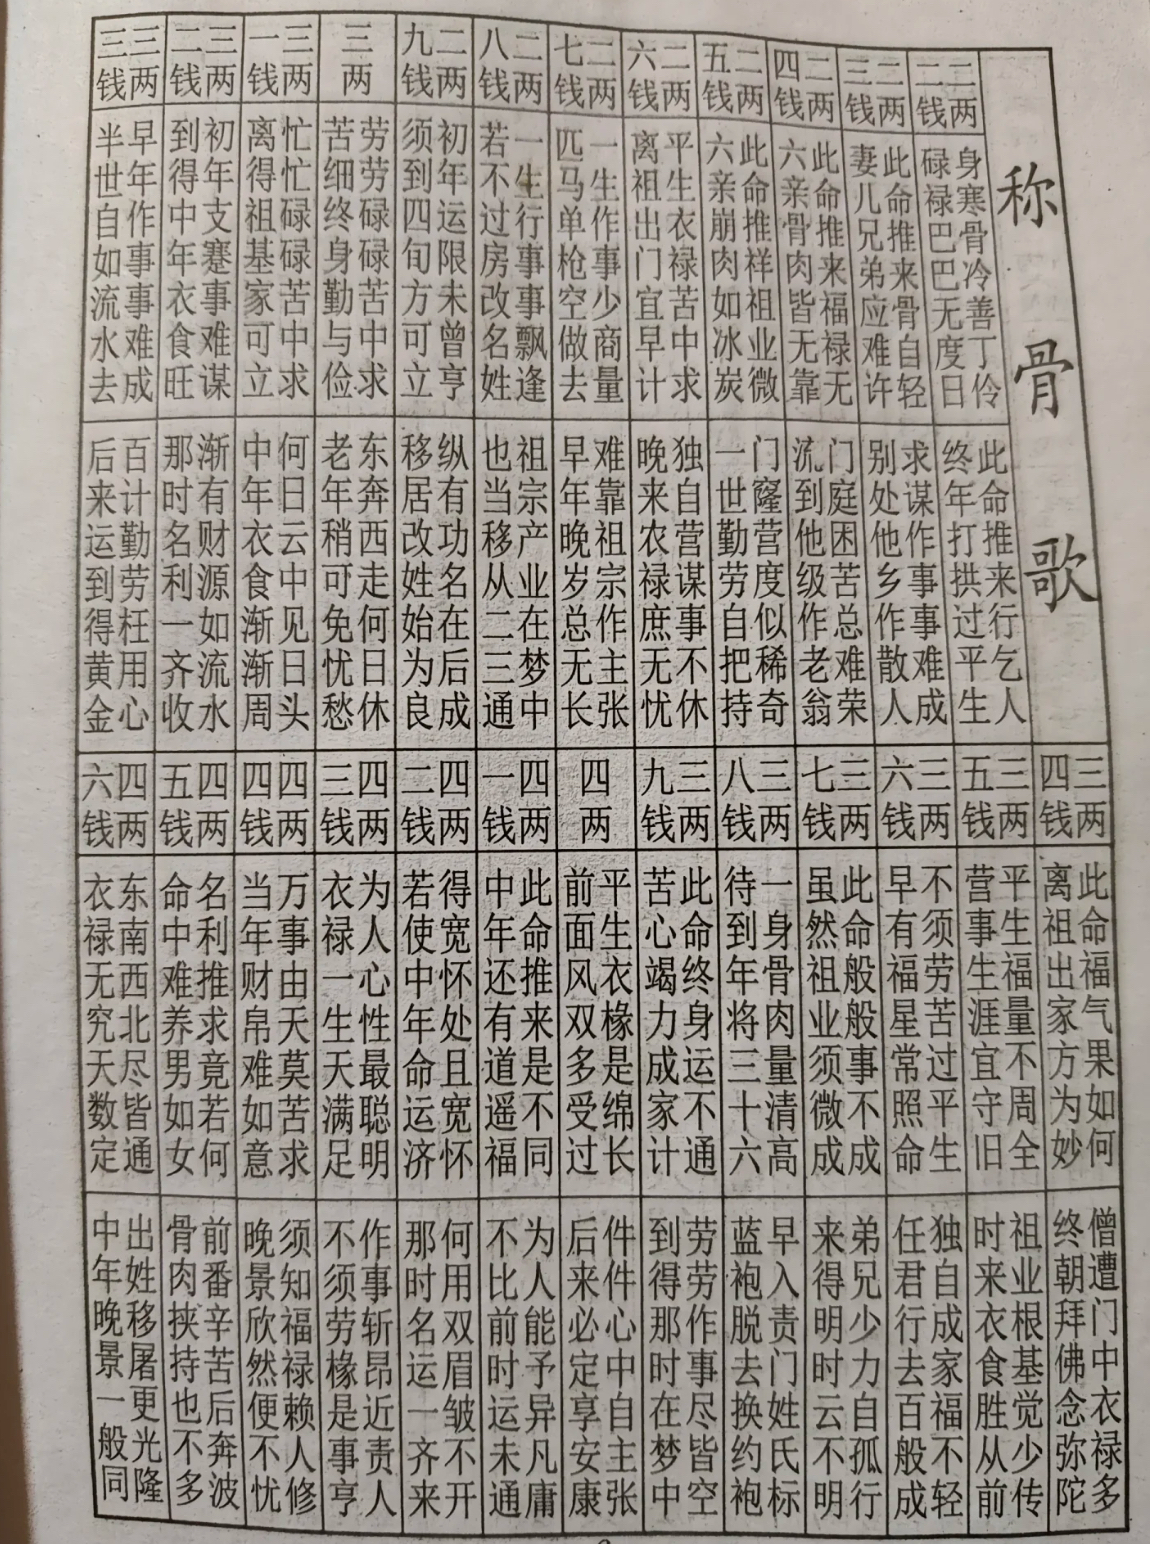 称骨歌
二两二钱
身寒骨冷善丁伶
碌禄巴巴无度日
此命推来行乞人
终年打拱过平生
二两三钱
此命推来骨自轻
妻儿兄弟应难许
求谋作事事难成
别处他乡作散人
二两四钱
此命推来福禄无
六亲骨肉皆无靠
门庭困苦总难荣
流到他级作老翁
二两五钱
此命推祥祖业微
六亲崩肉如冰炭
门窿营度似稀奇
一世勤劳自把持
二两六钱
平生衣禄苦中求
离祖出门宜早计
独自营谋事不休
晚来农禄庶无忧
二两七钱
一生作事少商量
匹马单枪空做去
难靠祖宗作主张
早年晚岁总无长
二两八钱
一生行事事飘逢
若不过房改名姓
祖宗产业在梦中
也当移从二三通
二两九钱
初年运限未曾亨
须到四旬方可立
纵有功名在后成
移居改姓始为良
三两
劳劳碌碌苦中求
苦细终身勤与俭
东奔西走何日休
老年稍可免忧愁
三两一钱
忙忙碌碌苦中求
离得祖基家可立
何日云中见日头
中年衣食渐渐周
三两二钱
初年支蹇事难谋
到得中年衣食旺
渐有财源如流水
那时名利一齐收
三两三钱
早年作事事难成
半世自如流水去
百计勤劳枉用心
后来运到得黄金
三两四钱
此命福气果如何
离祖出家方为妙
僧遭门中衣禄多
终朝拜佛念弥陀
三两五钱
平生福量不周全
营事生涯宜守旧
祖业根基觉少传
时来衣食胜从前
三两六钱
不须劳苦过平生
早有福星常照命
独自成家福不轻
任君行去百般成
三两七钱
此命般般事不成
虽然祖业须微成
弟兄少力自孤行
来得明时云不明
三两八钱
一身骨肉量清高
待到年将三十六
早入责门姓氏标
蓝袍脱去换约袍
三两九钱
此命终身运不通
苦心竭力成家计
劳劳作事尽皆空
到得那时在梦中
四两
平生衣椽是绵长
前面风双多受过
件件心中自主张
后来必定享安康
四两一钱
此命推来是不同
中年还有道遥福
为人能予异凡庸
不比前时运未通
四两二钱
得宽怀处且宽怀
若使中年命运济
何用双眉皱不开
那时名运一齐来
四两三钱
为人心性最聪明
衣禄一生天满足
作事斩昂近责人
不须劳椽是事亨
四两四钱
万事由天莫苦求
当年财帛难如意
须知福禄赖人修
晚景欣然便不忧
四两五钱
名利推求竟若何
命中难养男如女
前番辛苦后奔波
骨肉挟持也不多
四两六钱
东南西北尽皆通
衣禄无究天数定
出姓移屠更光隆
中年晚景一般同